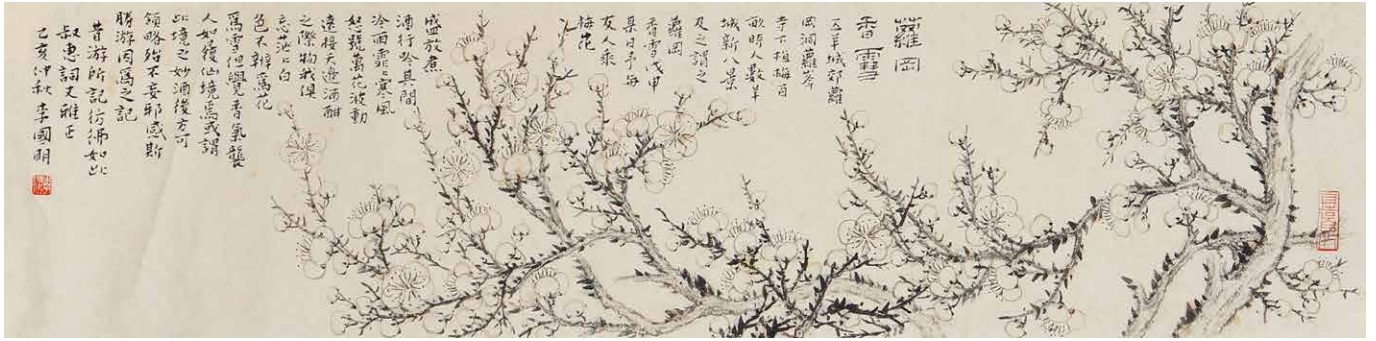 蘿岡
香雪
羊城郊蘿
岡洞蘿岑
寺下植梅百
畝時人數羊
城新八景
及之謂之
蘿岡
香雪戊申
某日予与
友人乘
梅花
盛放煮
酒行吟其間
冷雨霏〻寒風
怒號萬花波動
遠接天邊酒酣
之際物我俱
忘茫〻白
色不辨爲花
爲雪但覺香氣襲
人如履仙境焉或謂
此境之妙酒後方可
領略殆不妄邪感斯
勝游因爲之記
昔游所記彷彿如此
叔惠詞丈雅正
己亥仲秋 李國明